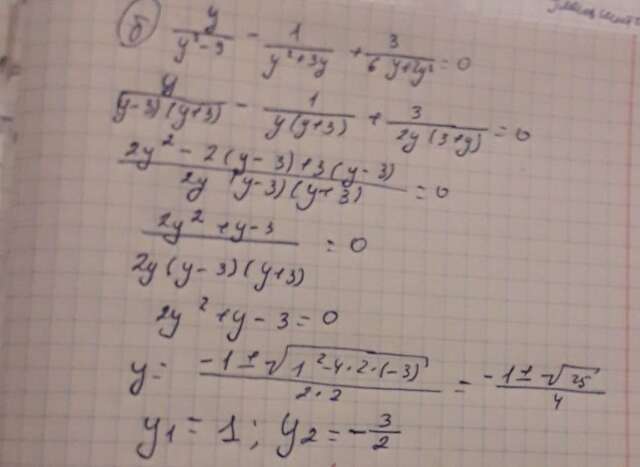 б) y/(y²-9) - 1/(y²+3y) + 3/(6y+2y²) = 0
y/((y-3)(y+3)) - 1/(y(y+3)) + 3/(2y(3+y)) = 0
(2y² - 2(y-3) + 3(y-3))/(2y(y-3)(y+3)) = 0
(2y² + y - 3)/(2y(y-3)(y+3)) = 0
2y² + y - 3 = 0
y = (-1 ± √(1² - 4·2·(-3)))/(2·2) = (-1 ± √25)/4
y₁ = 1; y₂ = -3/2